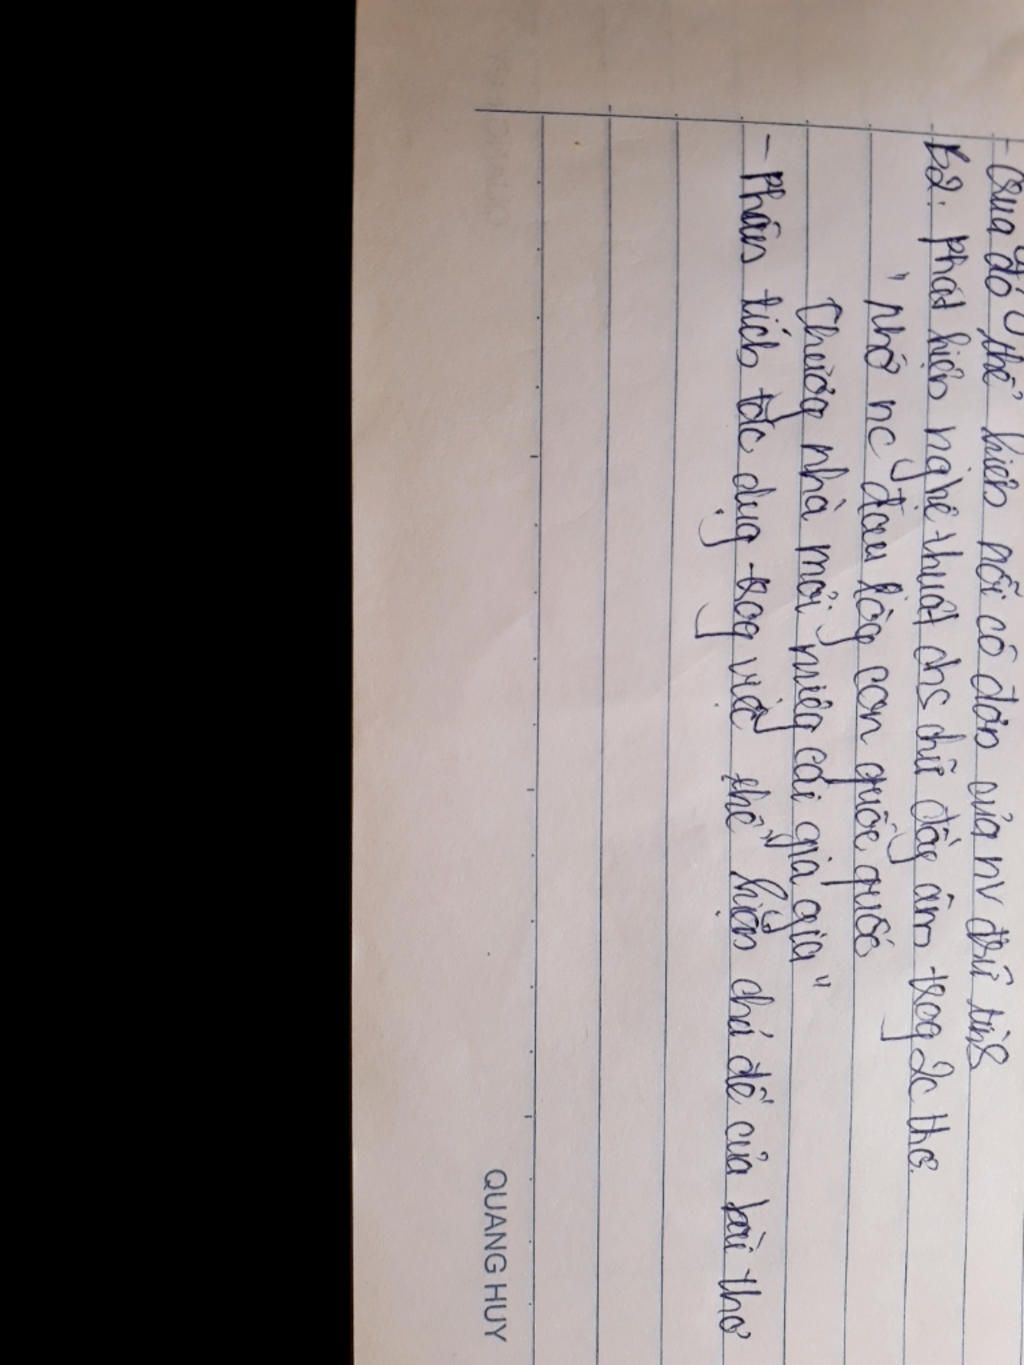 - Qua đó thể hiện nỗi cô đơn của nv trữ tình
B2. Phát hiện nghệ thuật chs chữ đồg âm trog 2c thơ.
" Nhớ nc đau lòg con quốc quốc
Thươg nhà mỏi miệg cái gia gia "
- Phân tích tác dụg trog việc thể hiện chủ đề của bài thơ
QUANG HUY